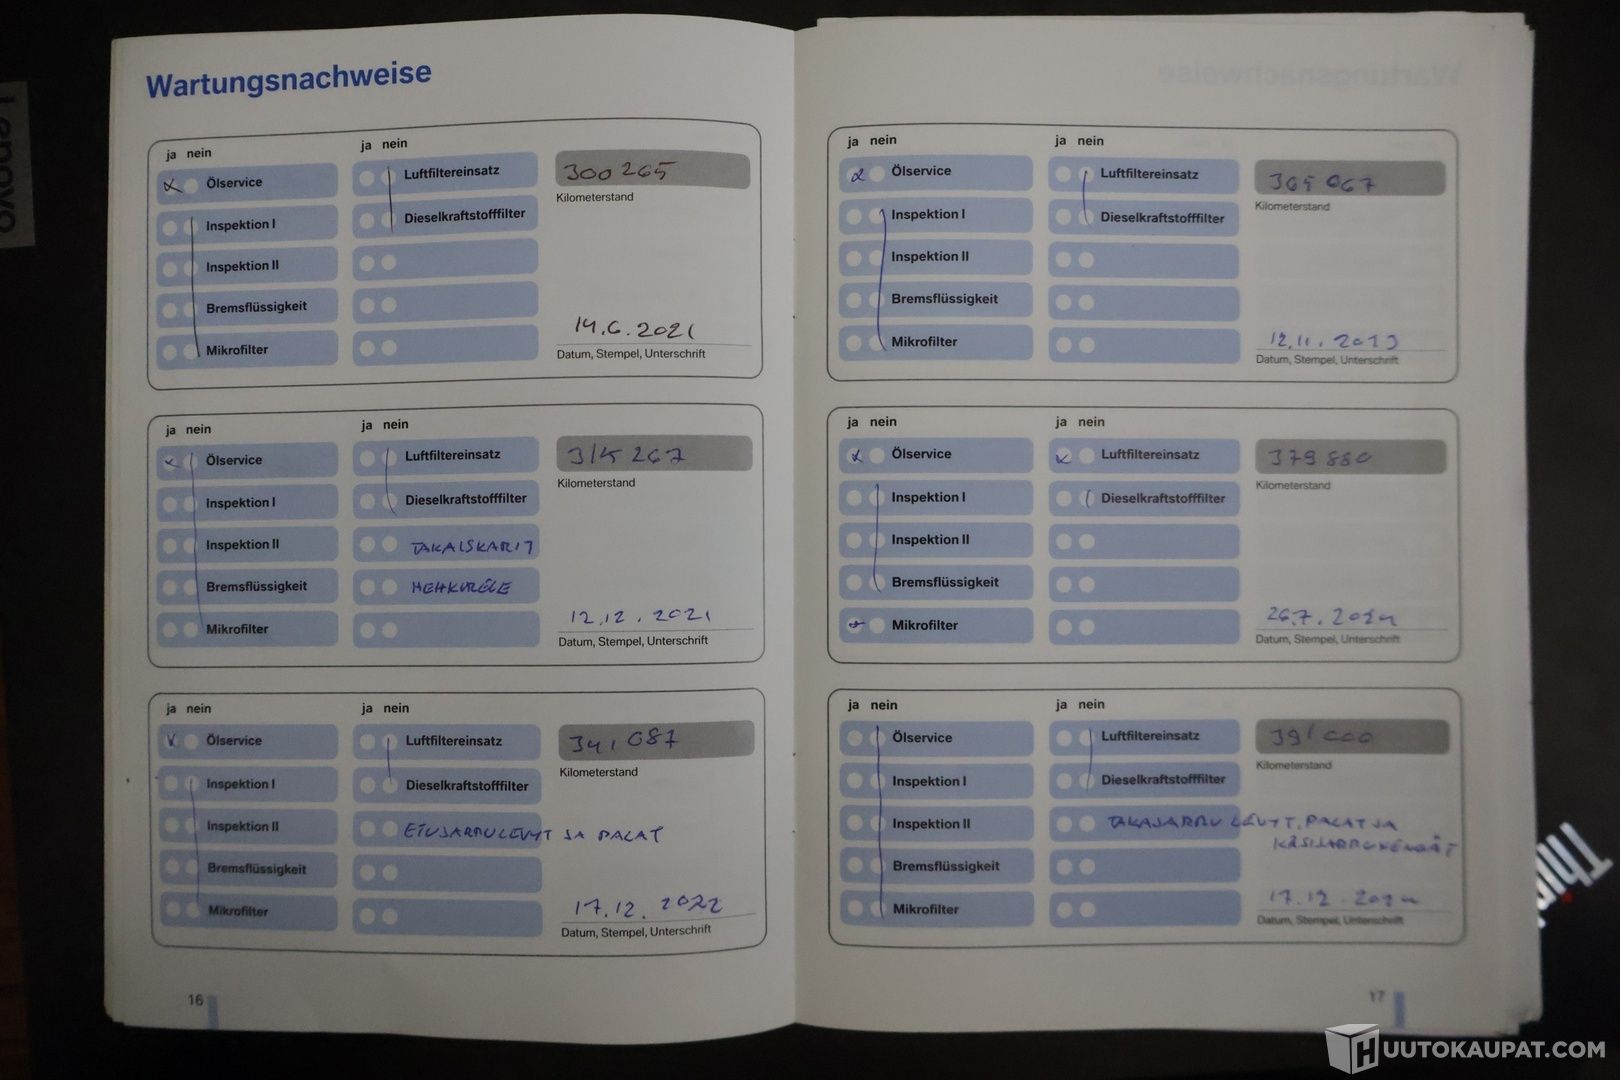 Wartungsnachweise
ja nein
Ölservice
Inspektion I
Inspektion II
Bremsflüssigkeit
Mikrofilter
ja nein
Luftfiltereinsatz
Dieselkraftstofffilter
300 265
Kilometerstand
14.6.2021
Datum, Stempel, Unterschrift
ja nein
Ölservice
Inspektion I
Inspektion II
Bremsflüssigkeit
Mikrofilter
ja nein
Luftfiltereinsatz
Dieselkraftstofffilter
TAKAISKARIT
HEHKURELE
315 267
Kilometerstand
12.12.2021
Datum, Stempel, Unterschrift
ja nein
Ölservice
Inspektion I
Inspektion II
Bremsflüssigkeit
Mikrofilter
ja nein
Luftfiltereinsatz
Dieselkraftstofffilter
ETUJARRULEVYT JA PALAT
341 087
Kilometerstand
17.12.2022
Datum, Stempel, Unterschrift
16
ja nein
Ölservice
Inspektion I
Inspektion II
Bremsflüssigkeit
Mikrofilter
ja nein
Luftfiltereinsatz
Dieselkraftstofffilter
365 067
Kilometerstand
12.11.2023
Datum, Stempel, Unterschrift
ja nein
Ölservice
Inspektion I
Inspektion II
Bremsflüssigkeit
Mikrofilter
ja nein
Luftfiltereinsatz
Dieselkraftstofffilter
379 880
Kilometerstand
26.7.2024
Datum, Stempel, Unterschrift
ja nein
Ölservice
Inspektion I
Inspektion II
Bremsflüssigkeit
Mikrofilter
ja nein
Luftfiltereinsatz
Dieselkraftstofffilter
TAKAJARRU LEVYT, PALAT JA
KÄSIJARRUKENGÄT
391 000
Kilometerstand
17.12.2024
Datum, Stempel, Unterschrift
17
Lenovo
HUUTOKAUPAT.COM